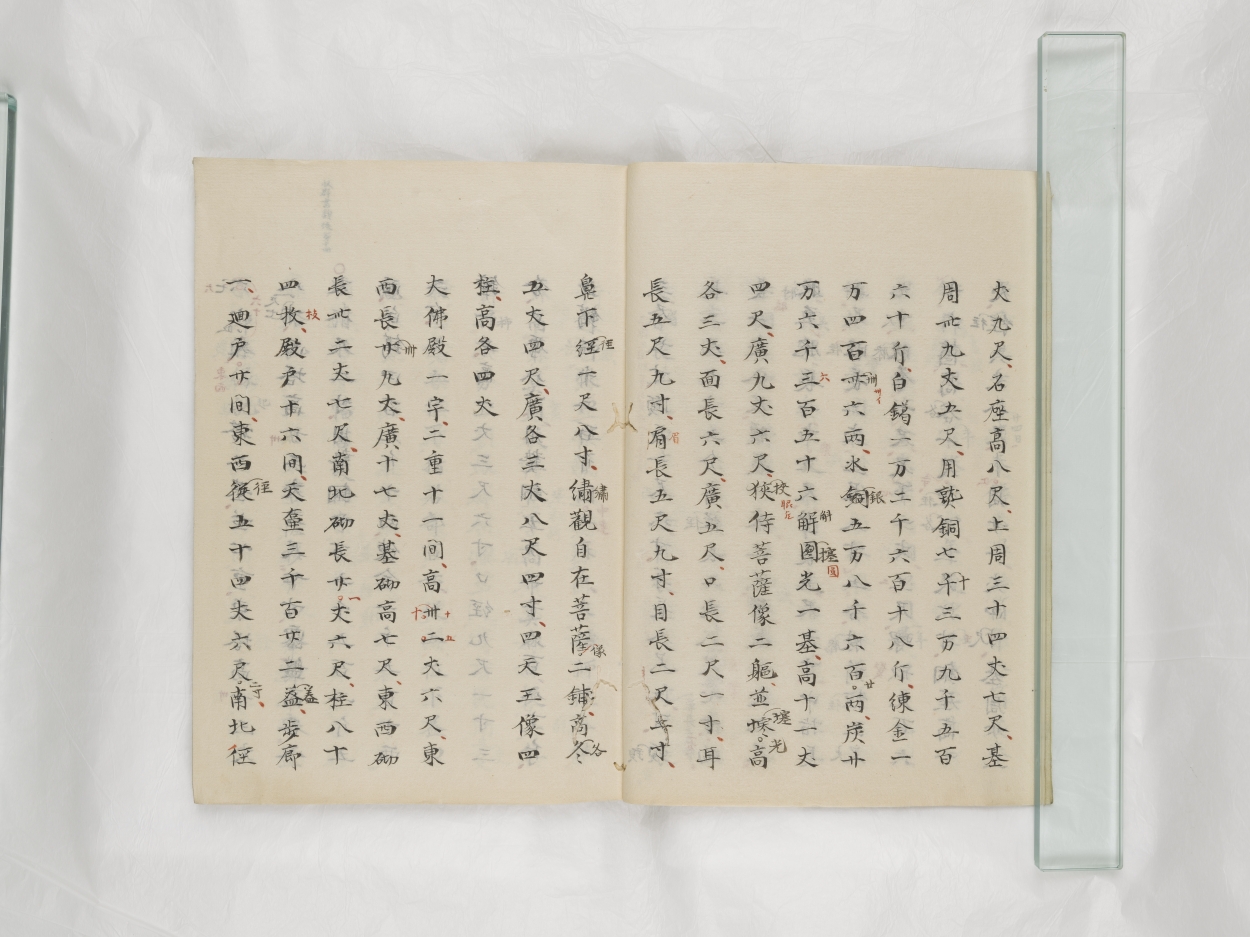 丈九尺、石座高八尺、上周三十四丈七尺、基
周卅九丈五尺、用熟銅七千三万九千五百
六十斤、白鑞一万二千六百十八斤、練金一
万四百卌六兩、水銅五万八千六百。兩、炭廿
万六千三百五十六解图光一基、高十一丈
四尺、廣九丈六尺、狹侍菩薩像二軀、並㙇。高
各三丈、面長六尺、廣五尺、口長二尺一寸、耳
長五尺九寸、肩長五尺九寸、目長二尺五寸、
鼻下經一尺八寸、繡觀自在菩薩二鋪、高冬
五丈四尺、廣各三丈八尺四寸、四天王像四
柱、高各四丈
大佛殿一宇、二重十一间、高卌二丈六尺、東
西長廿九丈、廣十七丈、基砌高七尺、東西砌
長卅二丈七尺、南北砌長廿。丈六尺、柱八十
四枚、殿戶十六间、天蓋三千百廿二益、步廊
一、廻戶廿间、東西從五十四丈六尺。南北徑